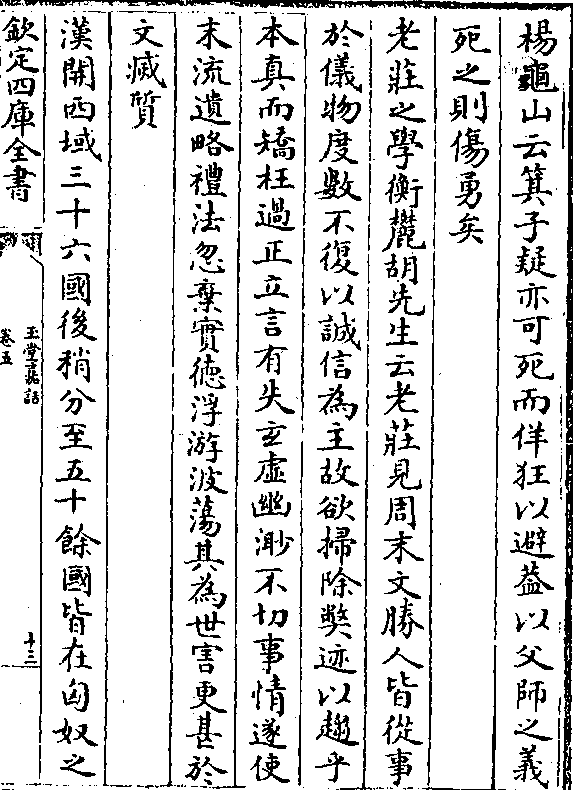 楊龜山云箕子疑亦可死而佯狂以避葢以父師之義
死之則傷勇矣
老莊之學衡麓胡先生云老莊見周末文勝人皆從事
於儀物度數不復以誠信為主故欲掃除獘迹以趨乎
本真而矯枉過正立言有失玄虛幽渺不切事情遂使
末流遺略禮法忽棄實德浮游波蕩其為世害更甚於
文滅質
漢開西域三十六國後稍分至五十餘國皆在匈奴之
欽定四庫全書
玉堂嘉話
卷五
十三